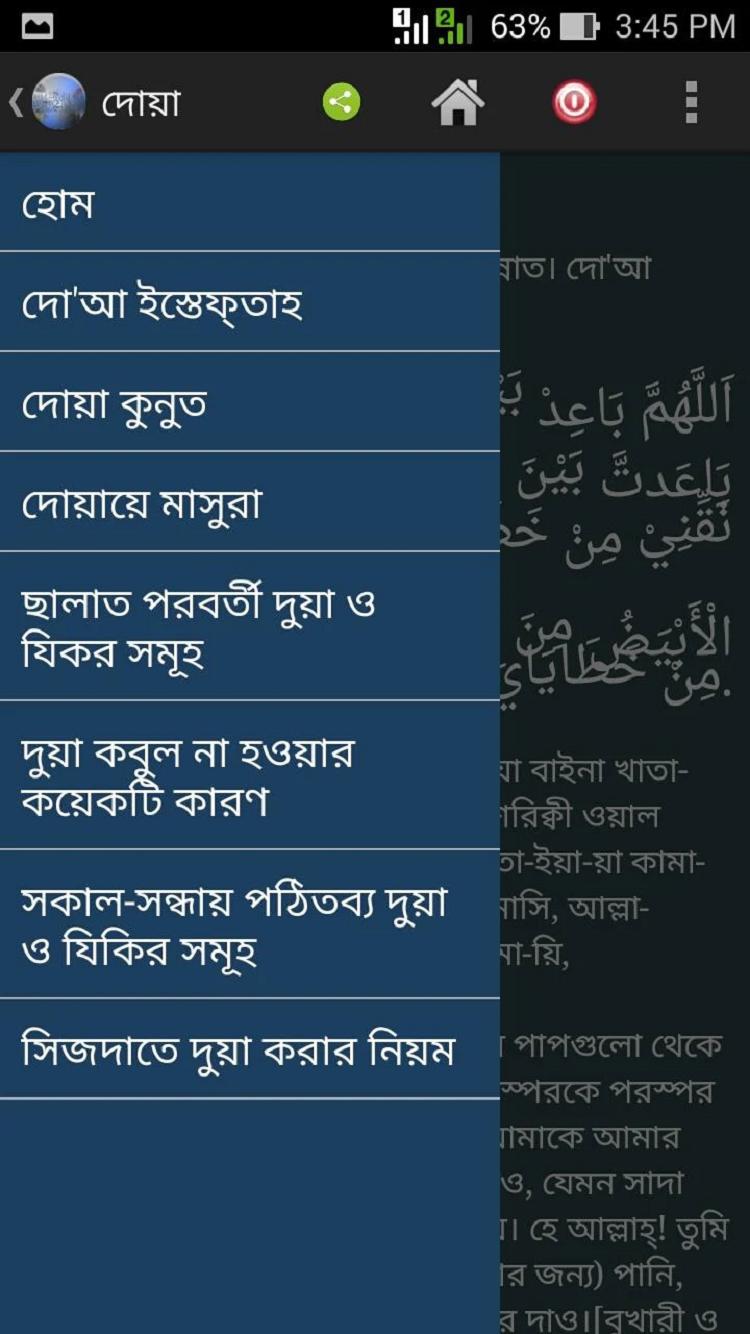 63% 3:45 PM
দোয়া
হোম
দো'আ ইস্তেফ্তাহ
দোয়া কুনুত
দোয়ায়ে মাসুরা
ছালাত পরবর্তী দুয়া ও
যিকর সমূহ
দুয়া কবুল না হওয়ার
কয়েকটি কারণ
সকাল-সন্ধায় পঠিতব্য দুয়া
ও যিকির সমূহ
সিজদাতে দুয়া করার নিয়ম
দো'আ
اَللَّهُمَّ بَاعِدْ
بَاعَدتَّ بَيْنَ
نَقِّنِيْ مِنْ
الْأَبْيَضُ مِنَ
مِنْ خَطَايَايَ.
বাইনা খাতা-
ওয়াল
কামা-
আল্লা-
পাপগুলো থেকে
পরস্পর
আমার
যেমন সাদা
হে আল্লাহ্! তুমি
জন্য) পানি,
দাও।[বুখারী ও